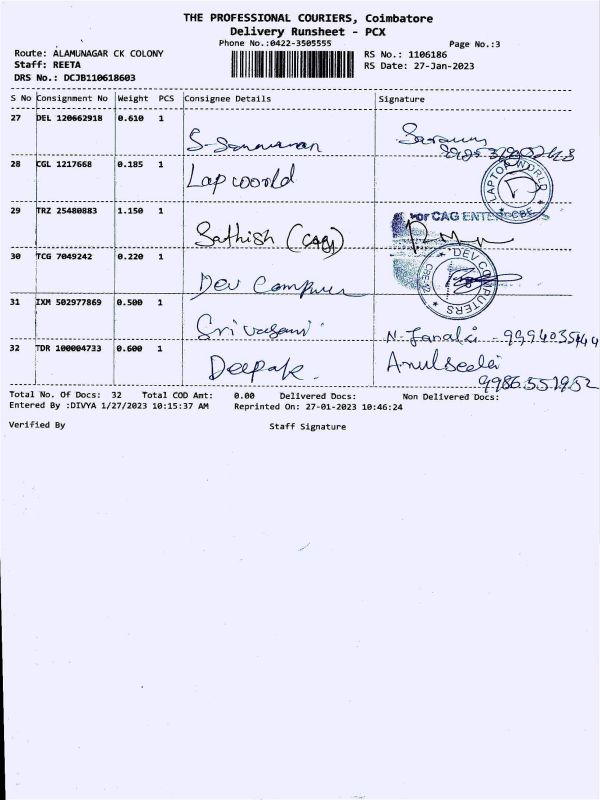 THE PROFESSIONAL COURIERS, Coimbatore
Delivery Runsheet - PCX
Phone No.:0422-3505555
Page No.:3
Route: ALAMUNAGAR CK COLONY
RS No.: 1106186
Staff: REETA
RS Date: 27-Jan-2023
DRS No.: DCJB110618603
S No Consignment No Weight PCS Consignee Details Signature
27 DEL 120662918 0.610 1
28 CGL 1217668 0.185 1 Lap woorld
LAPTOP WORLD CBE
29 TRZ 25480883 1.150 1 Sathish (CAG)
For CAG ENTER
30 TCG 7049242 0.220 1 Dev Computer
DEV COMPUTERS CBE-12
31 IXM 502977869 0.500 1 Srivasani N. Janaki - 9994035144
32 TDR 100004733 0.600 1 Deepak. 9986551952
Total No. Of Docs: 32 Total COD Amt: 0.00 Delivered Docs: Non Delivered Docs:
Entered By :DIVYA 1/27/2023 10:15:37 AM Reprinted On: 27-01-2023 10:46:24
Verified By Staff Signature